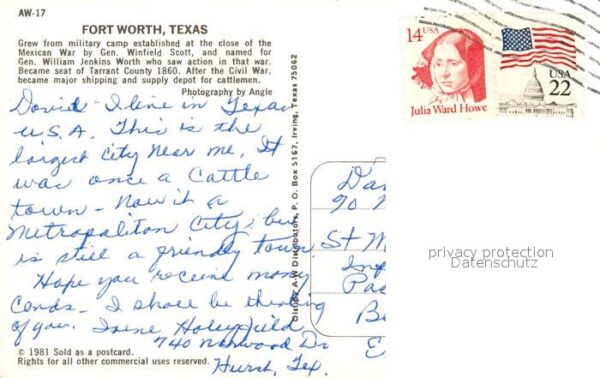 AW-17
FORT WORTH, TEXAS
Grew from military camp established at the close of the
Mexican War by Gen. Winfield Scott, and named for
Gen. William Jenkins Worth who saw action in that war.
Became seat of Tarrant County 1860. After the Civil War,
became major shipping and supply depot for cattlemen.
Photography by Angle
David - I live in Texas
U.S.A. This is the
largest city near me. It
was once a Cattle
town - Now it a
Metropoliton City; but
is still a friendly town
Hope you receive many
Cards. I shall be thinking
of you. Irene Holeyfield
740 Norwood Dr
Hurst, Tex
© 1981 Sold as a postcard.
Rights for all other commercial uses reserved.
Distr by A-W Distributors, P. O. Box 5167, Irving, Texas 75062
14 USA
Julia Ward Howe
USA
22
Da
90
St M
Pa
E
privacy protection
Datenschutz